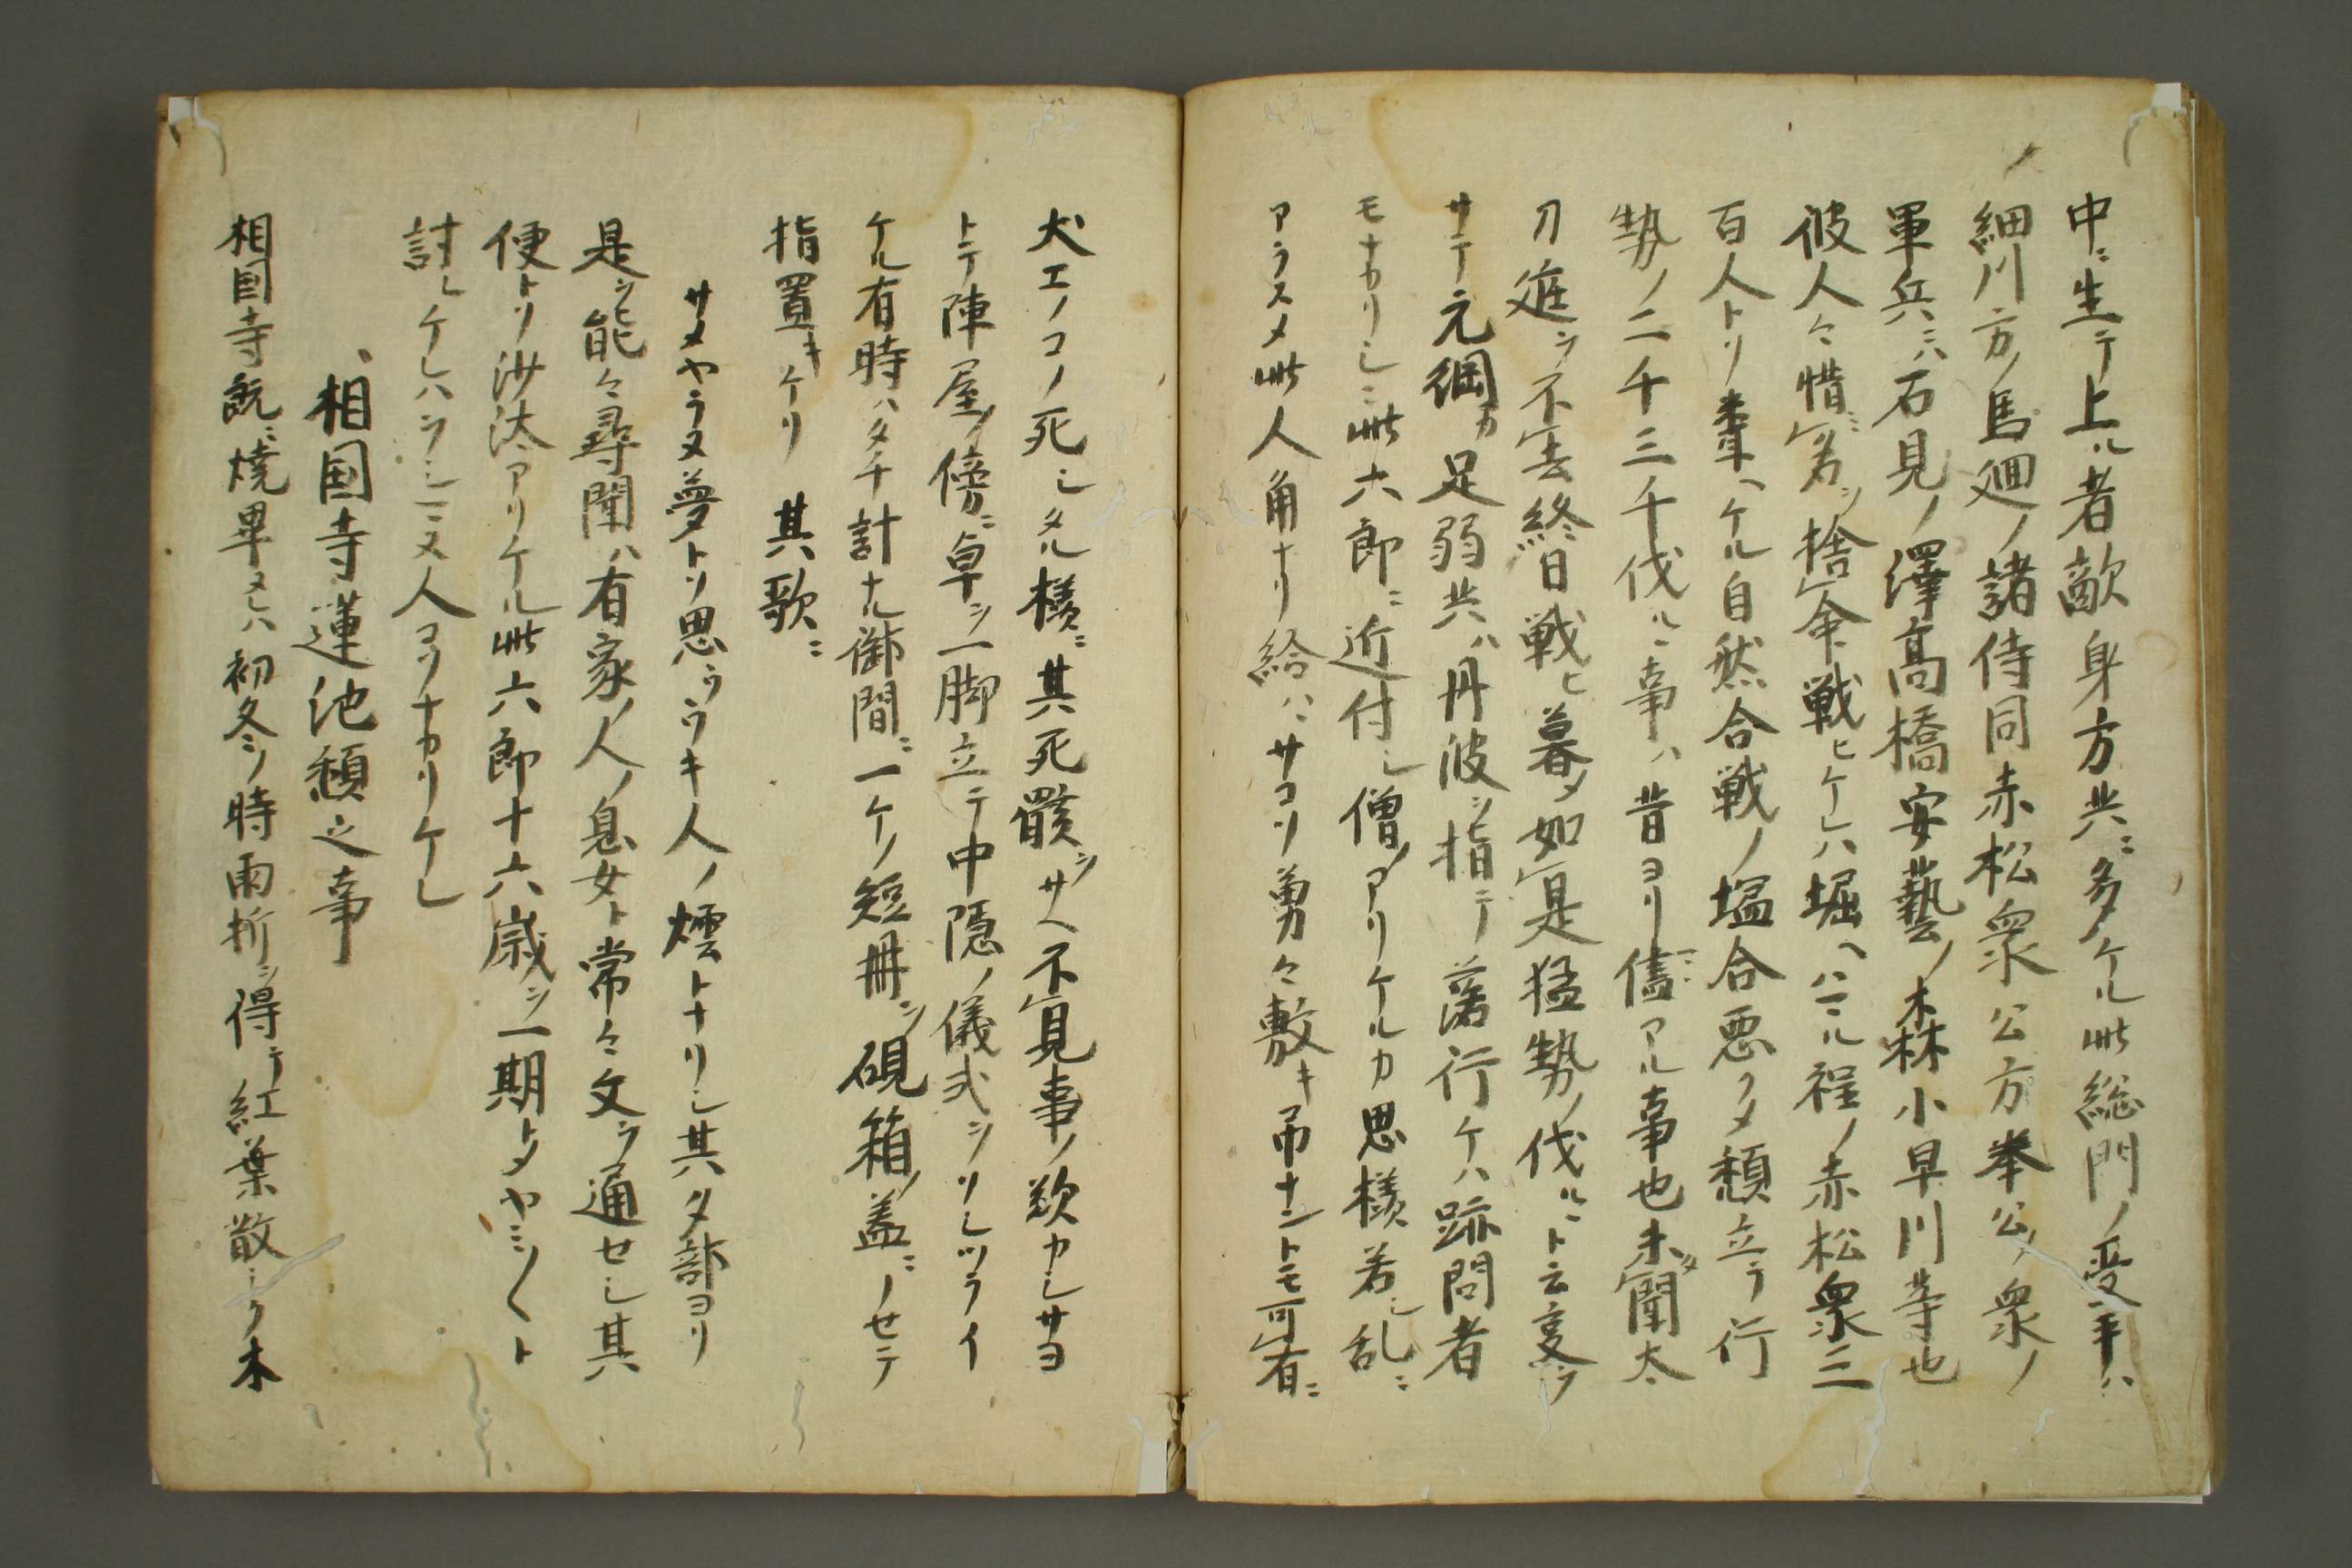 中ニ生テ上ル者敵身方共ニ多ケル此総門ノ受手ハ
細川方ノ馬廻ノ諸侍同赤松衆公方奉公ノ衆ノ
軍兵ニハ石見ノ澤高橋安藝ノ森小早川等也
彼人々惜名ヲ捨命戦ヒケレハ堀ヘハニル程ノ赤松衆三
百人トソ聞ヘケル自然合戦ノ塩合悪クメ頽立テ行
勢ノ二千三千伐ルヽ事ハ昔ヨリ儘アル事也未タ聞太
刀庭ヲ不去終日戦ヒ暮メ如是猛勢ノ伐ルヽト云㕝ヲ
サテ元綱カ足弱共ハ丹波ヲ指テ落行ケハ跡問者
モナカリシニ此六郎ニ近付シ僧ノアリケルカ思様若シ乱ニ
アラスメ此人角ナリ給ハヽサコソ勇々敷キ吊ナントモ可有ニ
犬エノコノ死シタル様ニ其死骸ヲサヘ不見事ノ欺カシサヨ
トテ陣屋ノ傍ニ卓ヲ一脚立テ中隠ノ儀式ヲソシツライ
ケル有時ハタチ計ナル御間ニ一ケノ短冊ヲ硯箱ノ蓋ニノセテ
指置キケリ 其歌ニ
サメヤラヌ夢トソ思ウウキ人ノ煙トナリシ其タ部ヨリ
是ヲ能々尋聞ハ有家ノ人ノ息女ト常々文ヲ通セシ其
便トソ沙汰アリケル此六郎十六歳ヲ一期トメヤミ〳〵ト
討レケレハヲシマヌ人コソナカリケレ
、相国寺蓮池頽之事
相国寺既ニ焼畢ヌレハ初冬ノ時雨折ヲ得テ紅葉散シク木